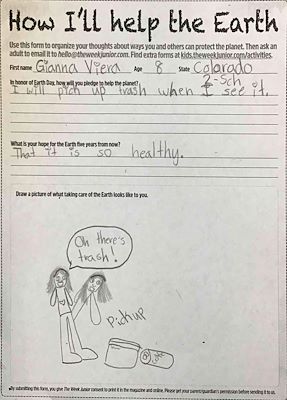 How I'll help the Earth
Use this form to organize your thoughts about ways you and others can protect the planet. Then ask an
adult to email it to hello@theweekjunior.com. Find extra forms at kids.theweekjunior.com/activities.
First name Gianna Viera Age 8 State Colorado
In honor of Earth Day, how will you pledge to help the planet?
I will pick up trash when I see it.
What is your hope for the Earth five years from now?
That it is so healthy.
Draw a picture of what taking care of the Earth looks like to you.
Oh there's
trash!
Pick up
By submitting this form, you give The Week Junior consent to print it in the magazine and online. Please get your parent/guardian's permission before sending it to us.